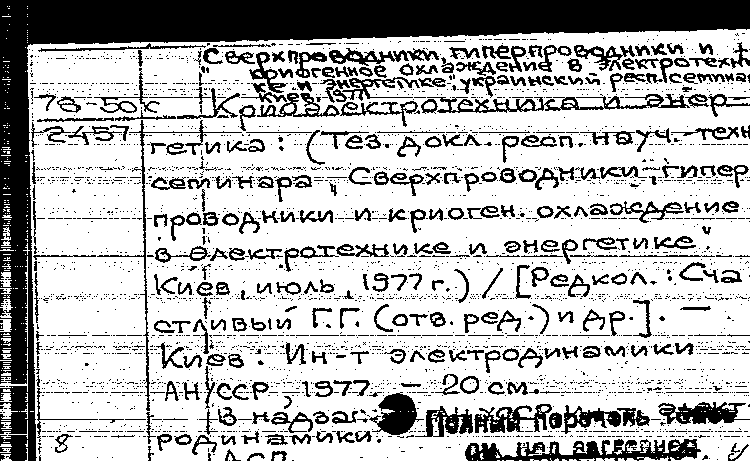 "Сверхпроводники, гиперпроводники и
криогенное охлаждение в электротехни
ке и энергетике", украинский респ. семинар
Киев. 1977
78-50к Криоэлектротехника и энер-
2457 гетика: (Тез. докл. респ. науч.-техн
семинара „Сверхпроводники, гипер
проводники и криоген. охлаждение
в электротехнике и энергетике".
Киев, июль, 1977 г.) / [Редкол.: Сча
стливый Г.Г. (отв. ред.) и др.]. —
Киев: Ин-т электродинамики
АН УССР, 1977. — 20 см.
В надзаг.: АН УССР, Ин-т элект-
8 родинамики.
Полный перечень томов
см. под заглавием